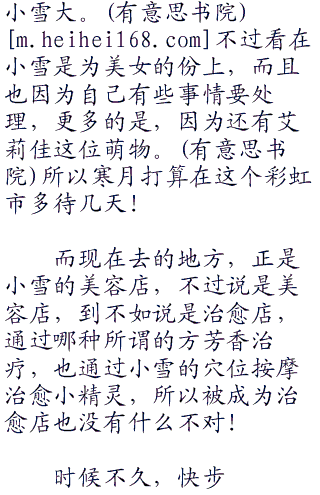 小雪大。(有意思书院)
[m.heihei168.com]不过看在
小雪是为美女的份上，而且
也因为自己有些事情要处
理，更多的是，因为还有艾
莉佳这位萌物。(有意思书
院)所以寒月打算在这个彩虹
市多待几天！
而现在去的地方，正是
小雪的美容店，不过说是美
容店，到不如说是治愈店，
通过哪种所谓的方芳香治
疗，也通过小雪的穴位按摩
治愈小精灵，所以被成为治
愈店也没有什么不对！
时候不久，快步